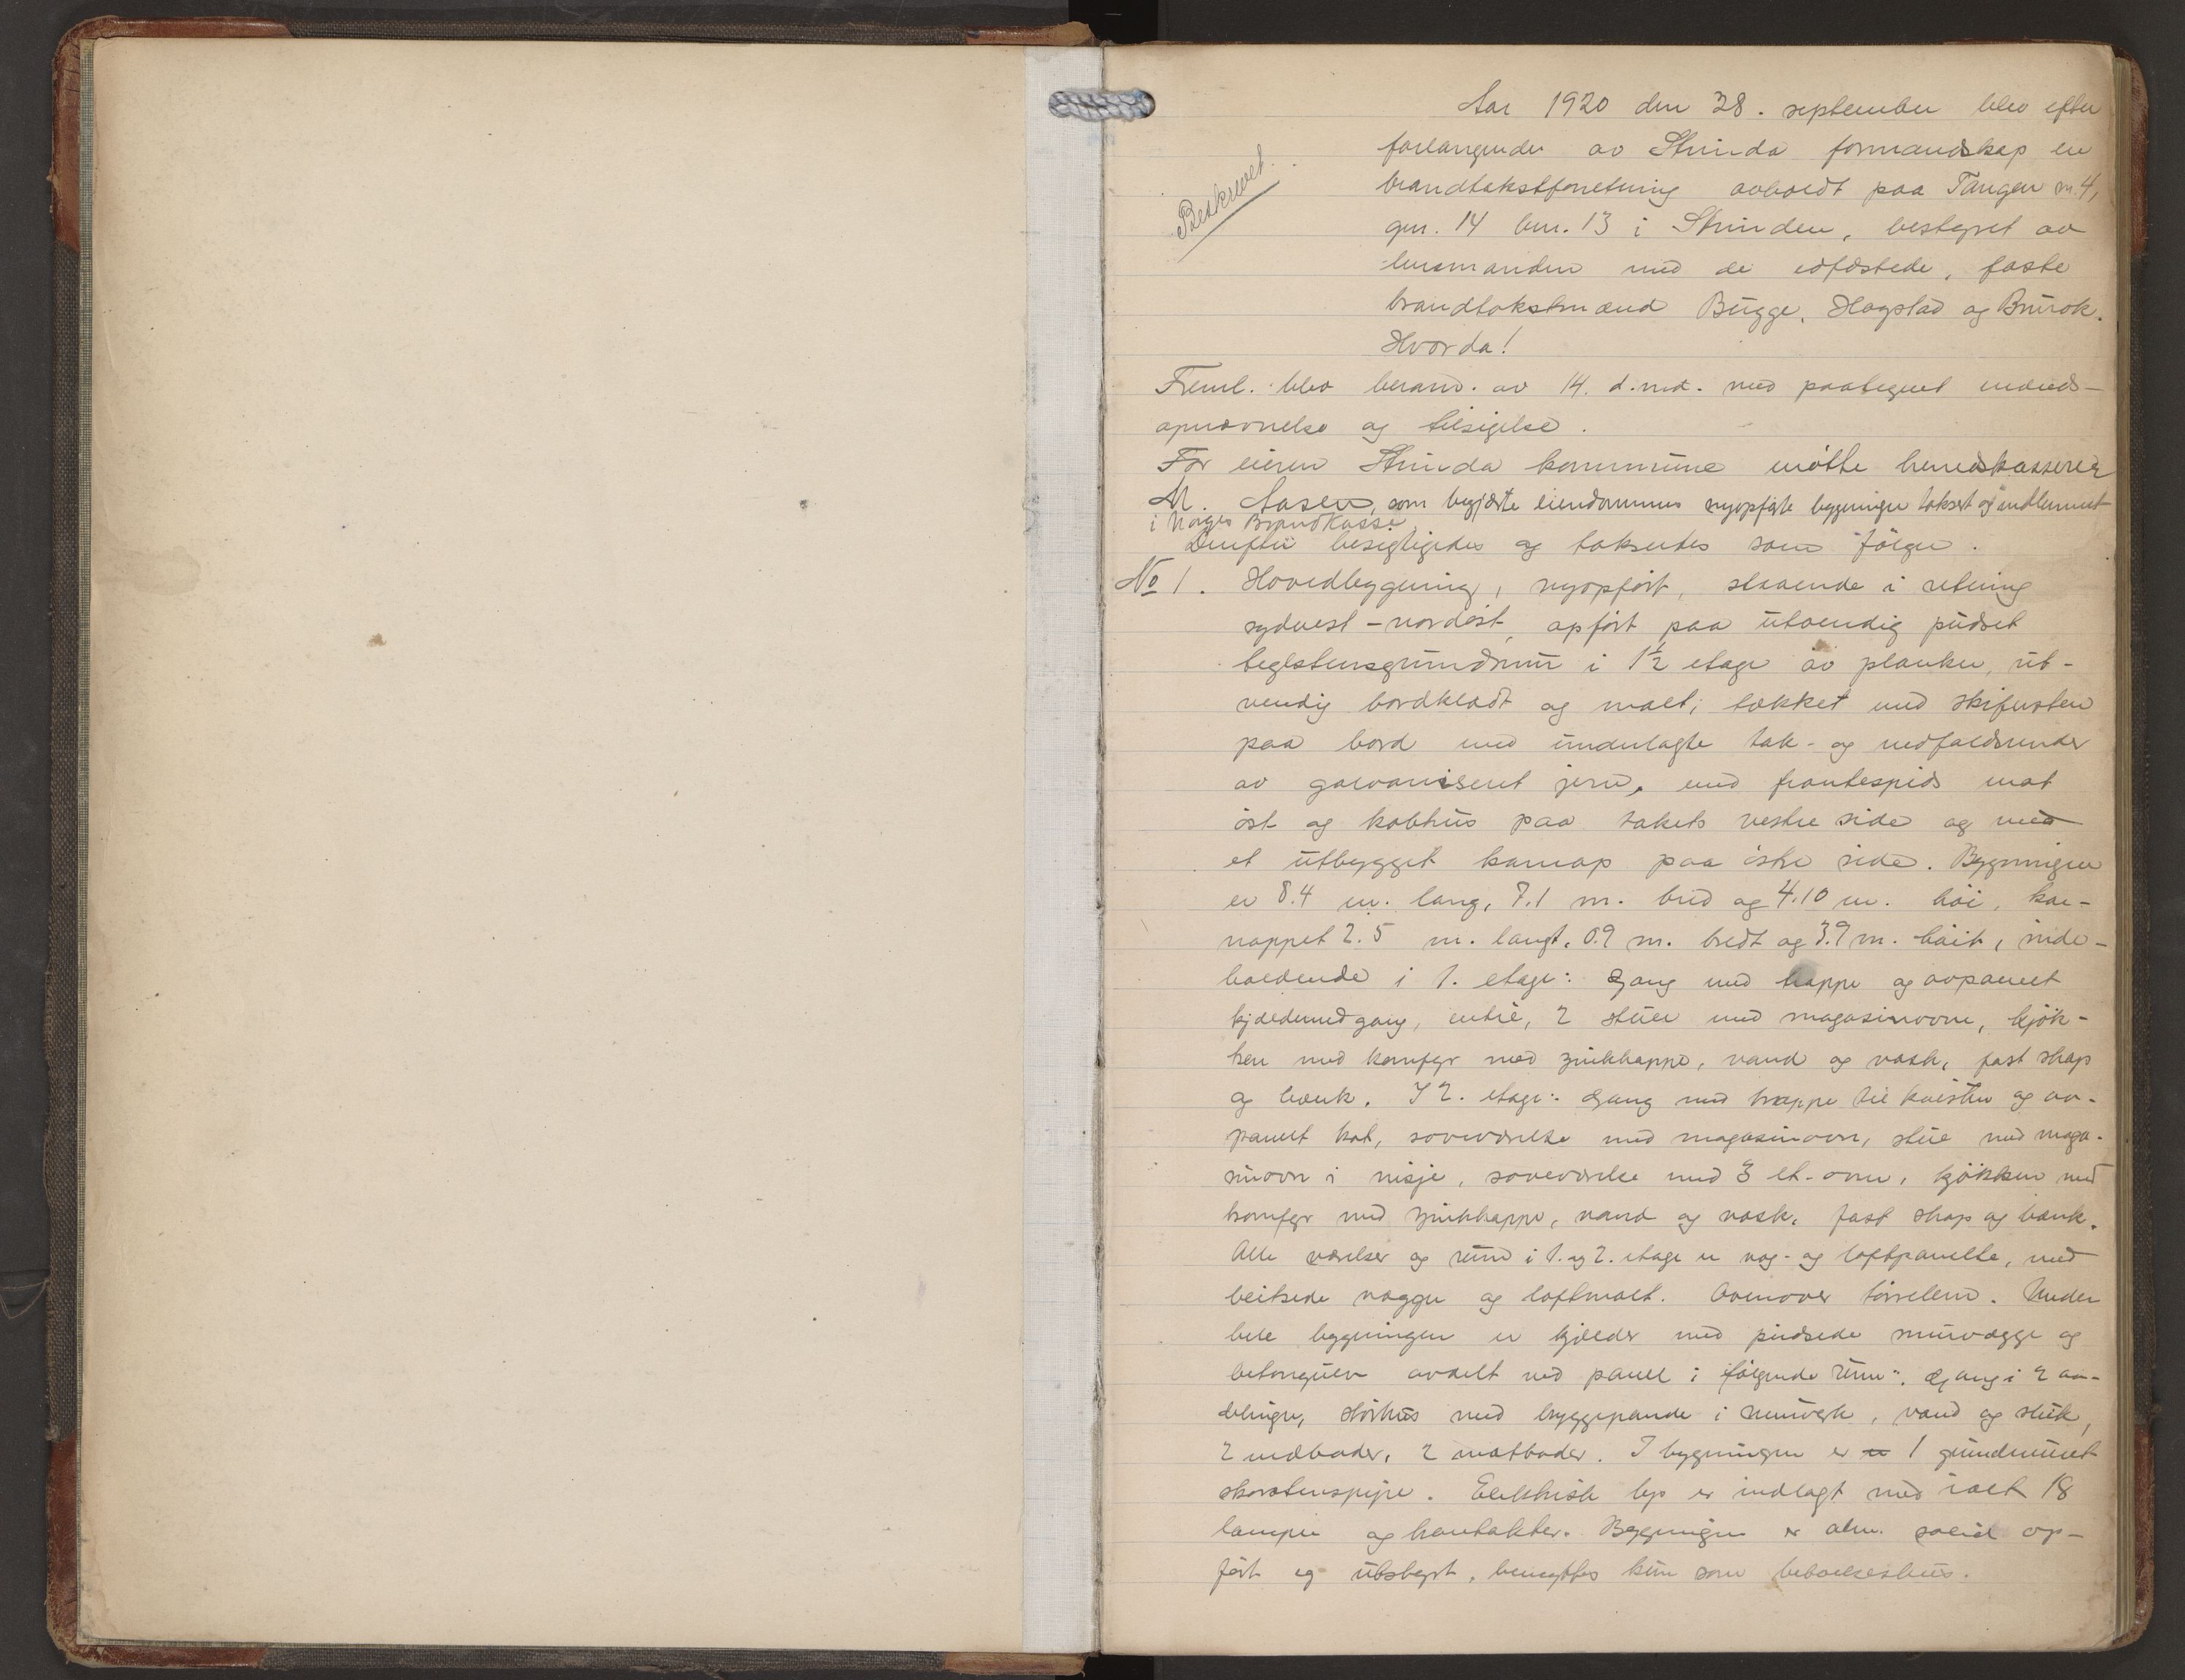 Beskrevet.
Aar 1920 den 28. september blev efter
forlangende av Strinda formandskap en
brandtakstforretning avholdt paa Tangen nr. 4,
gnr. 14 bnr. 13 i Strinden, bestyret av
lensmanden med de edfæstede, faste
brandtakstmænd Bugge, Hogstad og Brurok.
Hvorda!
Freml. blev beram. av 14. d. md. med paategnet mænds-
opnævnelse og tilsigelse.
For eieren Strinda kommune møtte herredskasserer
M. Aasen, som begjærte eiendommens nyopførte bygninger takset og indlemmet
i Norges Brandkasse.
Derefter besigtigedes og taksertes som følger.
No 1. Hovedbygning, nyopført, staaende i retning
sydvest-nordøst, opført paa utvendig pudset
teglstensgrundmur i 1½ etage av planker, ut-
vendig bordklædt og malt, tækket med skifersten
paa bord med underlagte tak- og nedfaldsrender
av galvaniseret jern, med frontespids mot
øst og kobhus paa takets vestre side og med
et utbygget karnap paa østre side. Bygningen
er 8.4 m. lang, 7.1 m. bred og 4.10 m. høi, kar-
nappet 2.5 m. langt, 0.9 m. bredt og 3.9 m. høit, inde-
holdende i 1. etage: Gang med trappe og avpanelt
kjældernedgang, entré, 2 stuer med magasinovne, kjøk-
ken med komfyr med zinkkappe, vand og vask, fast skap
og bænk. I 2. etage: Gang med trappe til kvisten og av-
panelt kot, soveværelse med magasinovn, stue med maga-
sinovn i nisje, soveværelse med 3 et.-ovn, kjøkken med
komfyr med zinkkappe, vand og vask, fast skap og bænk.
Alle værelser og rum i 1. og 2. etage er væg- og loftpanelte, med
beitsede vægge og loftmalt. Ovenover tørreloft. Under
hele bygningen er kjælder med pudsede murvægge og
betongulv avdelt ved panel i følgende rum: Gang i 2 av-
delinger, störhus med bryggepande i murverk, vand og sluk,
2 vedboder, 2 matboder. I bygningen er 1 grundmuret
skorstenspipe. Elektrisk lys er indlagt med ialt 18
lamper og kontakter. Bygningen er alm. solid op-
ført og utstyrt, benyttes kun som beboelseshus.